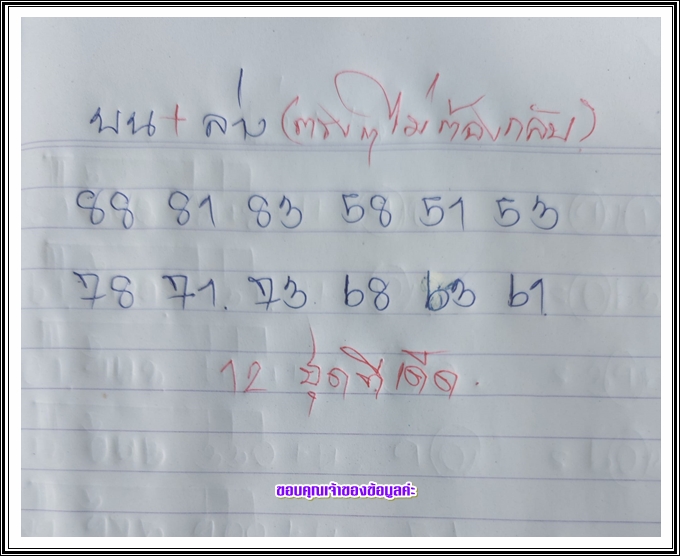 บน + ล่าง (ตรงๆไม่ต้องกลับ)
88 81 83 58 51 53
78 71. 73. 68 63 61.
12 ชุดทีเด็ด.
ขอบคุณเจ้าของข้อมูลค่ะ